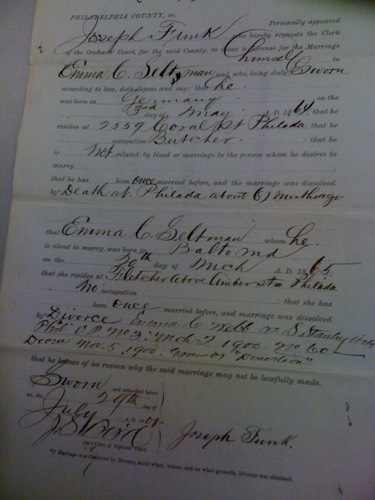 PHILADELPHIA COUNTY, ss. Personally appeared
Joseph Funk who hereby requests the Clerk
of the Orphans' Court, for the said County, to issue a License for the Marriage
of himself to
Emma C. Seltman and who, being duly Sworn
according to law, doth depose and say: that he
was born in Germany on the
3rd day of May A. D. 1864 ; that he
resides at 2559 Coral St Philada ; that he
occupation Butcher ; that he
is not related by blood or marriage to the person whom he desires to
marry
that he has been once married before, and the marriage was dissolved
by Death at Philada about 6 months ago
that Emma C. Seltman whom he
is about to marry, was born in Balto Md
on the day of Mch A. D. 1865 ;
that she resides at Fletcher above Amber St Philada
No occupation ; that she has
been once married before, and the marriage was dissolved
by Divorce Emma C. vs. Stanley
Phil. C P No 3. Mch T 1900 No 60
Decree Nov. 5, 1900. Grounds "Desertion"
that he knows of no reason why the said marriage may not be lawfully made.
Sworn and subscribed before
me, this 29th day of
July A. D. 1901.
Joseph Funk.
Ass't Clerk of Orphans' Court.
*If Marriage was dissolved by Divorce, state when, where, and on what grounds, Divorce was obtained.